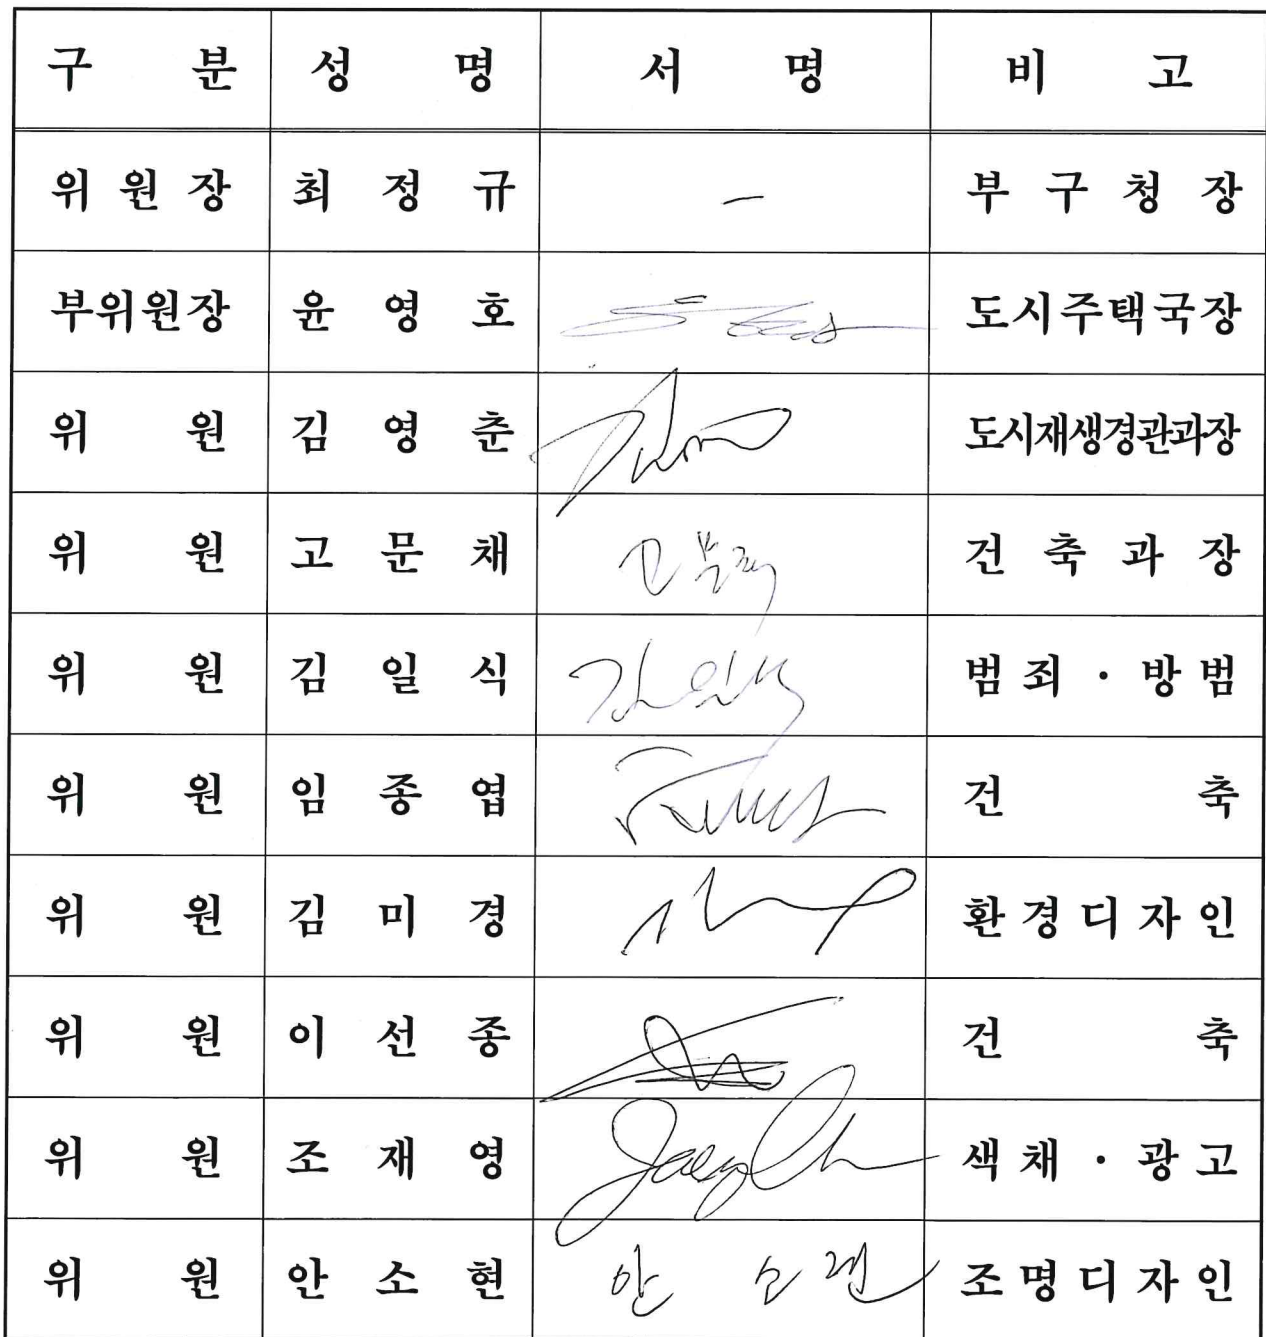 구 분 성 명 서 명 비 고
위 원 장 최 정 규 – 부 구 청 장
부위원장 윤 영 호 도시주택국장
위 원 김 영 춘 도시재생경관과장
위 원 고 문 채 건 축 과 장
위 원 김 일 식 김일식 범 죄 · 방 범
위 원 임 종 엽 건 축
위 원 김 미 경 환 경 디 자 인
위 원 이 선 종 건 축
위 원 조 재 영 색 채 · 광 고
위 원 안 소 현 안 소 현 조 명 디 자 인